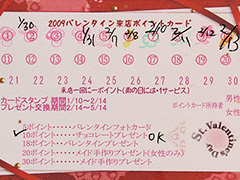 2009バレンタイン来店ポイントカード
1/30 1/31 1/31 1/11 1/8 2/10 3/11 2/12 2/13
21 22 23 24 25 26 27 28 29 30
来店一回に一ポイント(雨の日には+1サービス)
カードスタンプ 期間1/10~2/14
プレゼント交換期間2/4~2/14
男性
ポイントカード所持者
女性
5ポイント・・・・・バレンタインフォトカード
10ポイント・・・・・チョコレートプレゼント OK
18ポイント・・・・・バレンタインプレゼント
20ポイント・・・・・メイド手作りプレゼント(女性のみ)
30ポイント・・・・・メイド手作りプレゼント
St.Valentine's Day